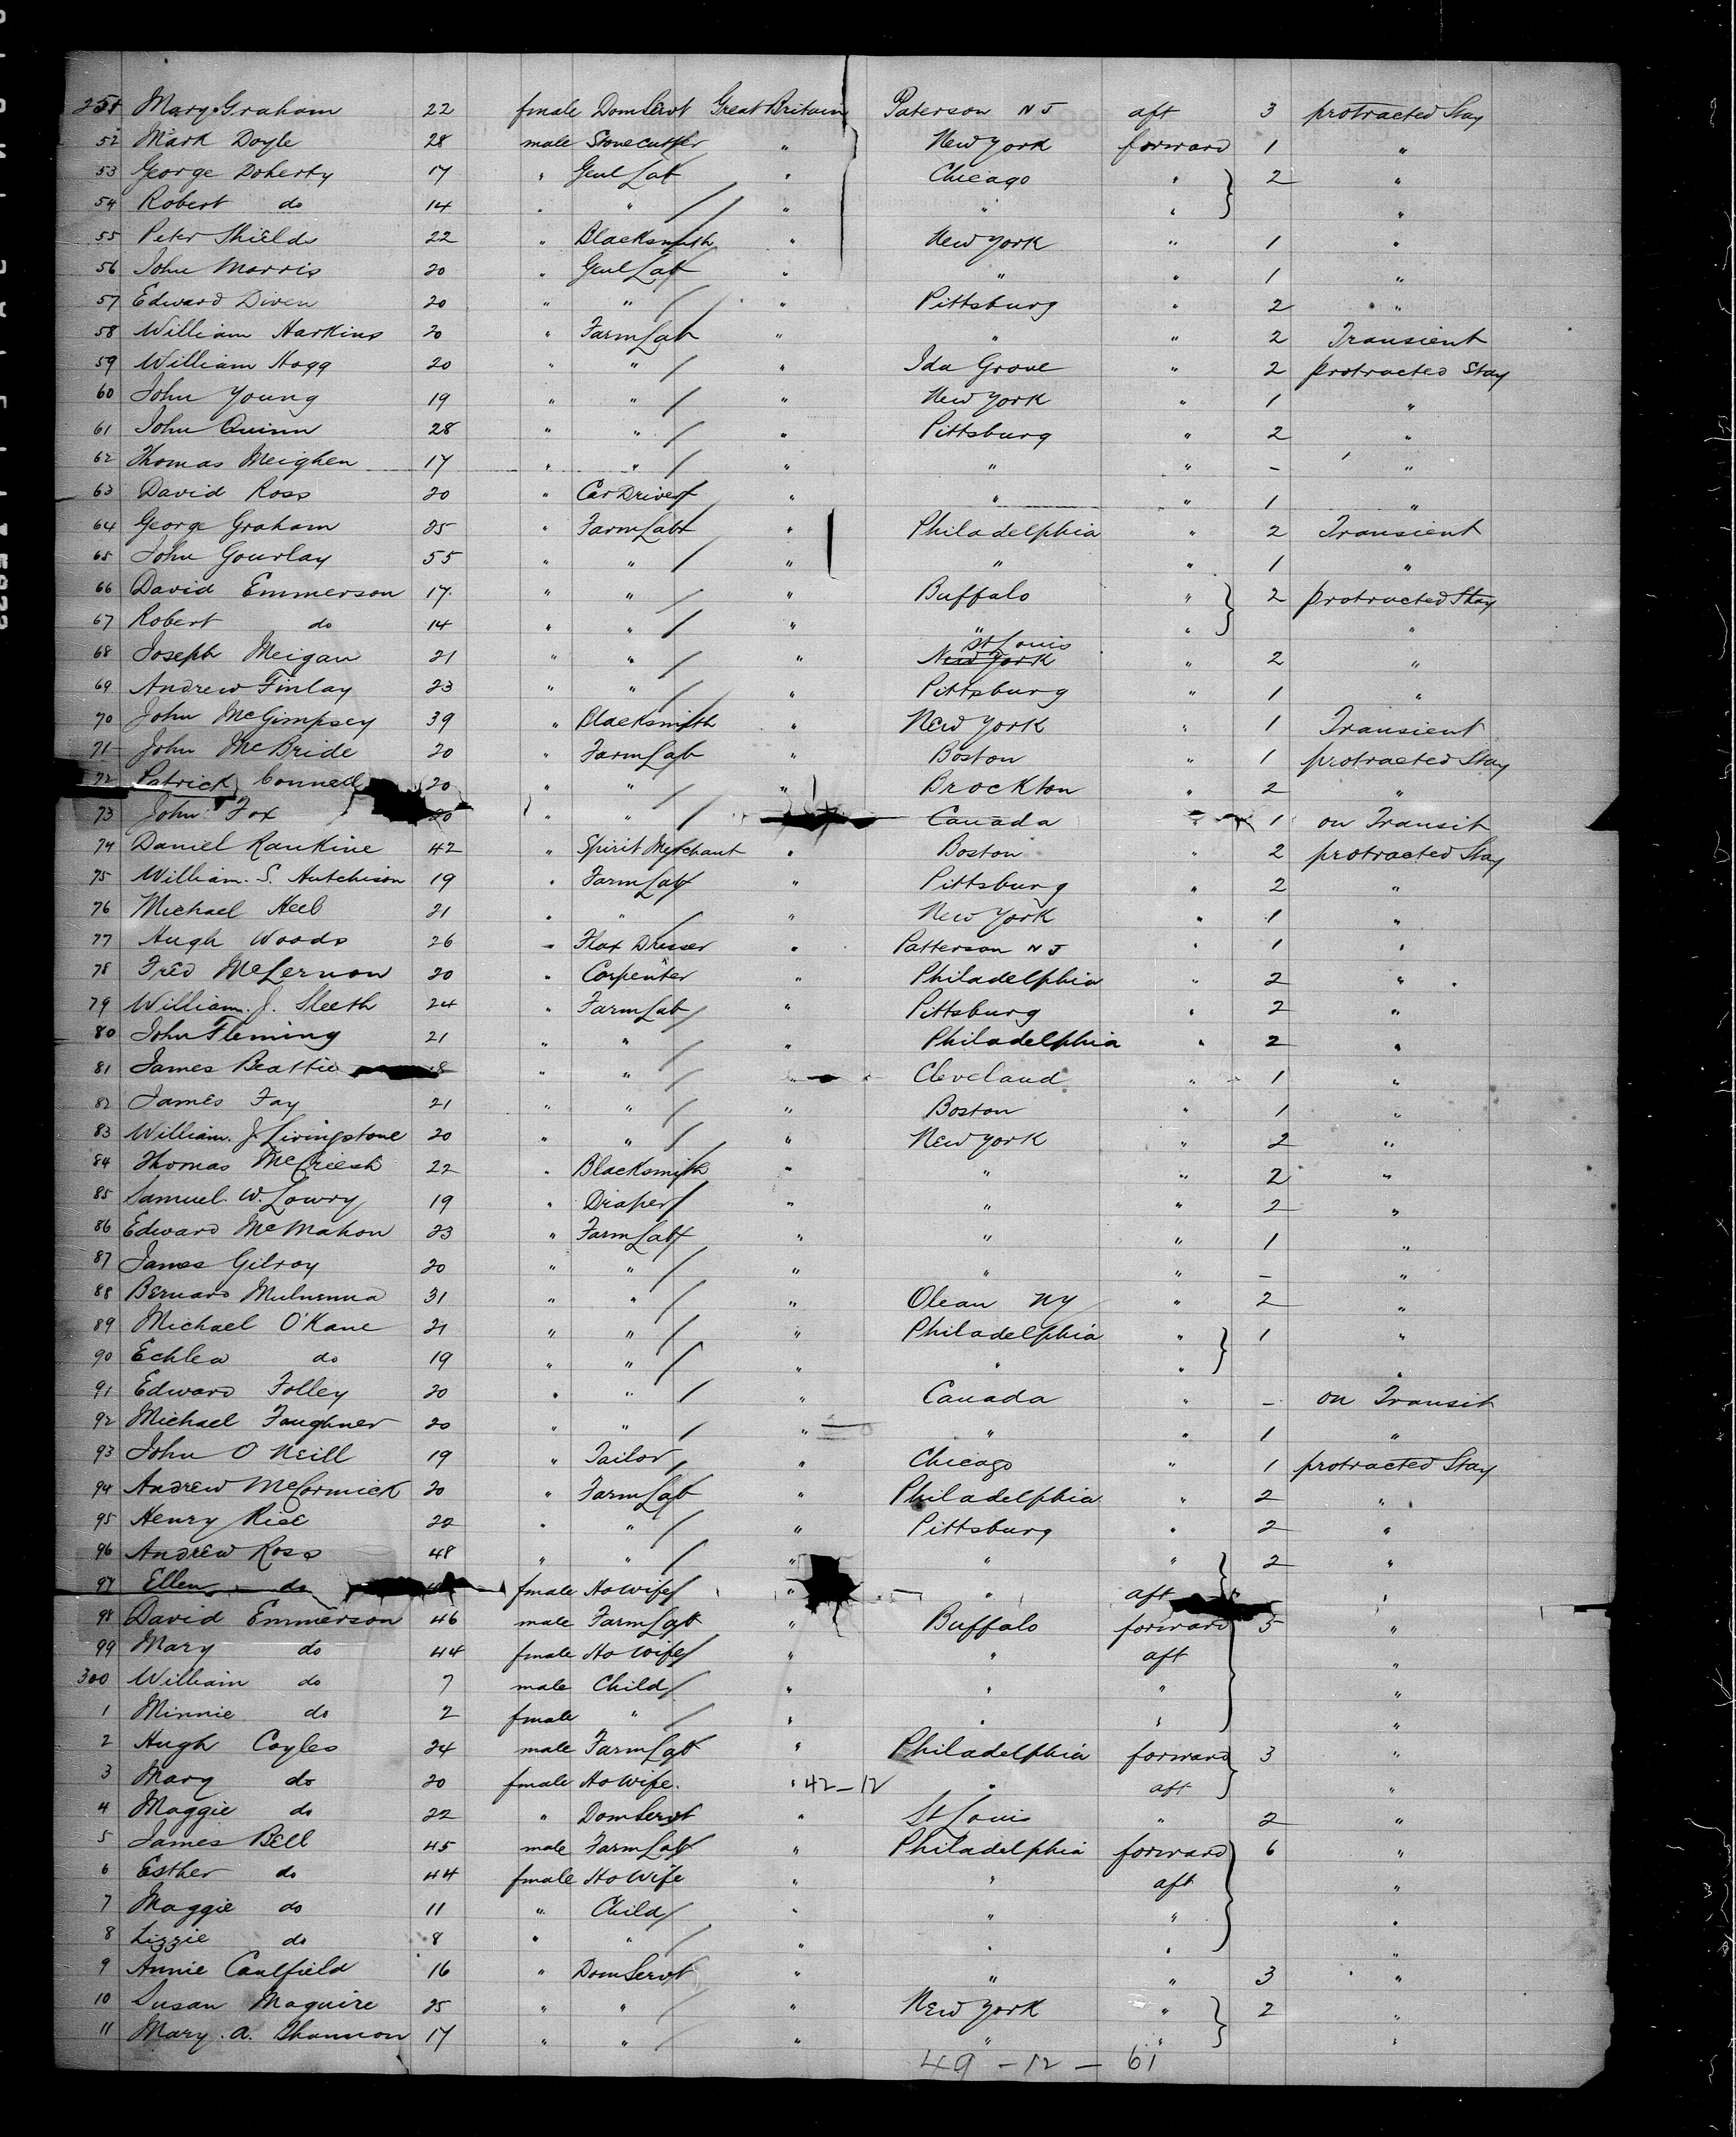 251 Mary Graham 22 fmale Dom Servt Great Britain Paterson N J aft 3 protracted Stay
52 Mark Doyle 28 male Stonecutter " New York forward 1 "
53 George Doherty 17 " Genl Lab " Chicago " 2 "
54 Robert do 14 " " " " " "
55 Peter Shields 22 " Blacksmith " New York " 1 "
56 John Morris 20 " Genl Lab " " " 1 "
57 Edward Diven 20 " " " Pittsburg " 2 "
58 William Harkins 20 " Farm Lab " " " 2 Transient
59 William Hogg 20 " " " Ida Grove " 2 protracted Stay
60 John Young 19 " " " New York " 1 "
61 John Quinn 28 " " " Pittsburg " 2 "
62 Thomas Meighen 17 " " " " " - "
63 David Ross 20 " Car Driver " " " 1 "
64 George Graham 25 " Farm Lab " Philadelphia " 2 Transient
65 John Gourlay 55 " " " " " 1 "
66 David Emmerson 17 " " " Buffalo " 2 protracted Stay
67 Robert do 14 " " " " " "
68 Joseph Meigan 21 " " " St Louis New York " 2 "
69 Andrew Finlay 23 " " " Pittsburg " 1 "
70 John McGimpsey 39 " Blacksmith " New York " 1 Transient
71 John McBride 20 " Farm Lab " Boston " 1 protracted Stay
72 Patrick Connell 20 " " " Brockton " 2 "
73 John Fox 20 " " Canada " 1 on Transit
74 Daniel Rankine 42 " Spirit Merchant " Boston " 2 protracted Stay
75 William. S. Hutchison 19 " Farm Lab " Pittsburg " 2 "
76 Michael 21 " " " New York " 1 "
77 Hugh Woods 26 " Flax Dresser " Patterson N J " 1 "
78 Fred McLernon 20 " Carpenter " Philadelphia " 2 "
79 William. J. Sleeth 24 " Farm Lab " Pittsburg " 2 "
80 John Fleming 21 " " " Philadelphia " 2 "
81 James Beattie 8 " " " Cleveland " 1 "
82 James Fay 21 " " " Boston " 1 "
83 William. J. Livingstone 20 " " " New York " 2 "
84 Thomas McCreesh 22 " Blacksmith " " " 2 "
85 Samuel. W. Lowry 19 " Draper " " " 2 "
86 Edward McMahon 23 " Farm Lab " " " 1 "
87 James Gilroy 20 " " " " " - "
88 Bernard 31 " " " Olean NY " 2 "
89 Michael O'Kane 21 " " " Philadelphia " 1 "
90 Echlea do 19 " " " " " "
91 Edward Folley 20 " " " Canada " - on Transit
92 Michael Faughner 20 " " " " " 1 "
93 John O Neill 19 " Tailor " Chicago " 1 protracted Stay
94 Andrew McCormick 20 " Farm Lab " Philadelphia " 2 "
95 Henry Rice 22 " " " Pittsburg " 2 "
96 Andrew Ross 48 " " " " " 2 "
97 Ellen do fmale Ho Wife " " aft "
98 David Emmerson 46 male Farm Lab " Buffalo forward 5 "
99 Mary do 44 fmale Ho Wife " " aft "
300 William do 7 male Child " " " "
1 Minnie do 2 fmale " " " " "
2 Hugh Coyles 24 male Farm Lab " Philadelphia forward 3 "
3 Mary do 20 fmale Ho Wife. " 42-12 " aft "
4 Maggie do 22 " Dom Servt " St Louis " 2 "
5 James Bell 45 male Farm Lab " Philadelphia forward 6 "
6 Esther do 44 fmale Ho Wife " " aft "
7 Maggie do 11 " Child " " " "
8 Lizzie do 8 " " " " " "
9 Annie Caulfield 16 " Dom Servt " " " 3 "
10 Susan Maguire 25 " " " New York " 2 "
11 Mary. A. Shannon 17 " " " " " "
49 - 12 - 61